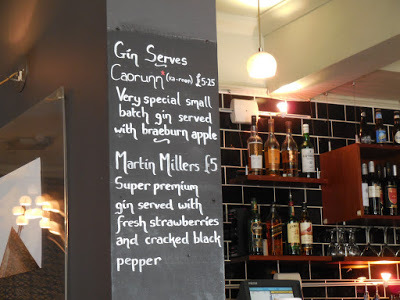 Gin Serves
Caorunn* (ka-roon) £5.25
Very special small
batch gin served
with braeburn apple
Martin Millers £5
Super premium
gin served with
fresh strawberries
and cracked black
pepper